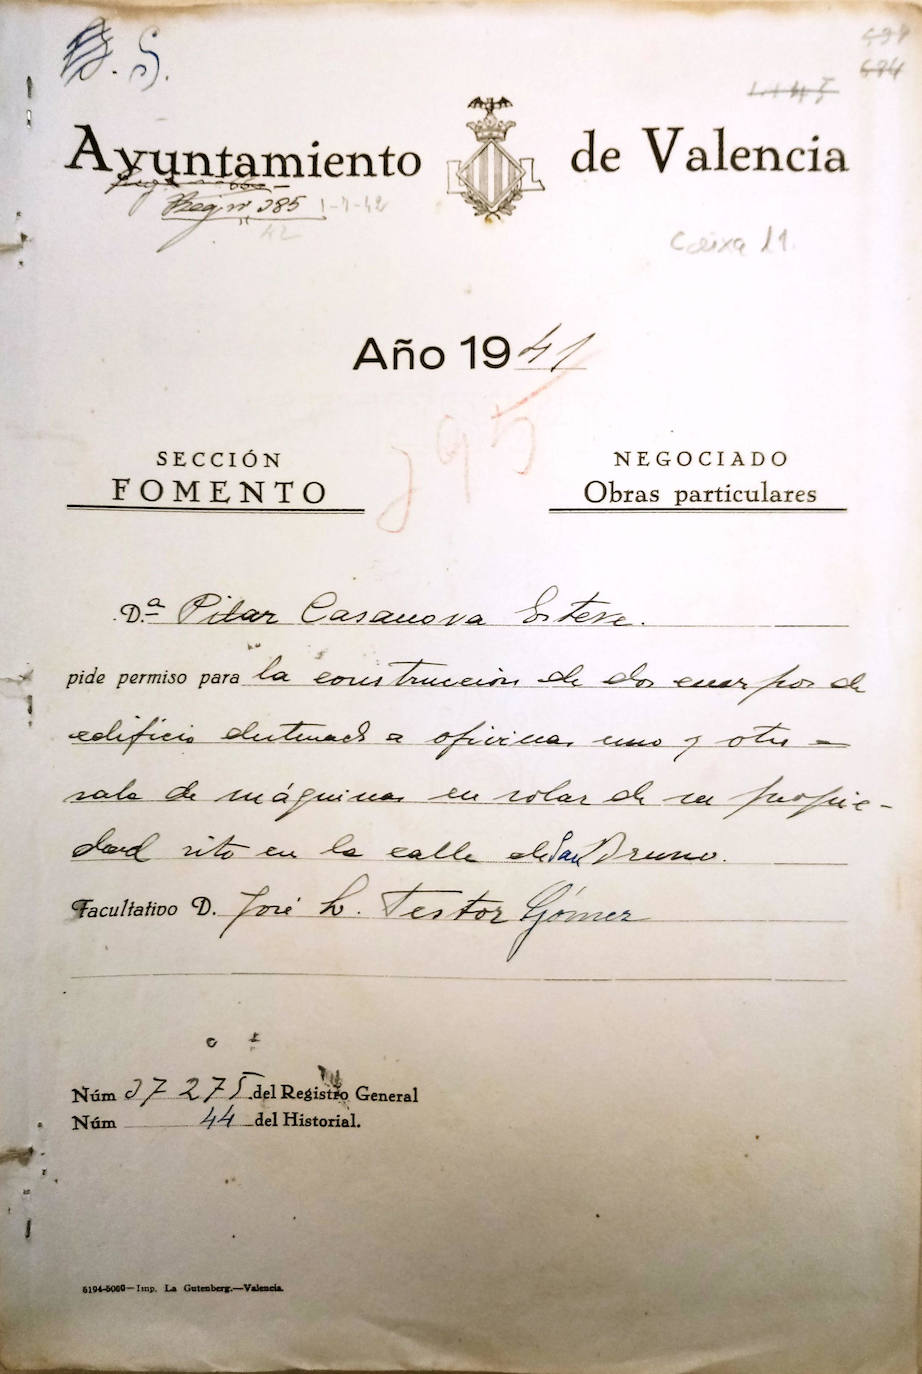 J. S.
698
694
1.145
Ayuntamiento de Valencia
Reg nº 285 1-7-42
42
Caixa 11.
Año 1941
295
SECCIÓN
FOMENTO
NEGOCIADO
Obras particulares
D.ª Pilar Casanova Esteve.
pide permiso para la construccion de dos cuerpos de
edificio destinado a oficinas uno y otro
sala de máquinas en solar de su propie-
dad sito en la calle de San Bruno.
Facultativo D. José L. Testor Gómez
Núm 27275. del Registro General
Núm 44 del Historial.
6194-5000—Imp. La Gutenberg.—Valencia.